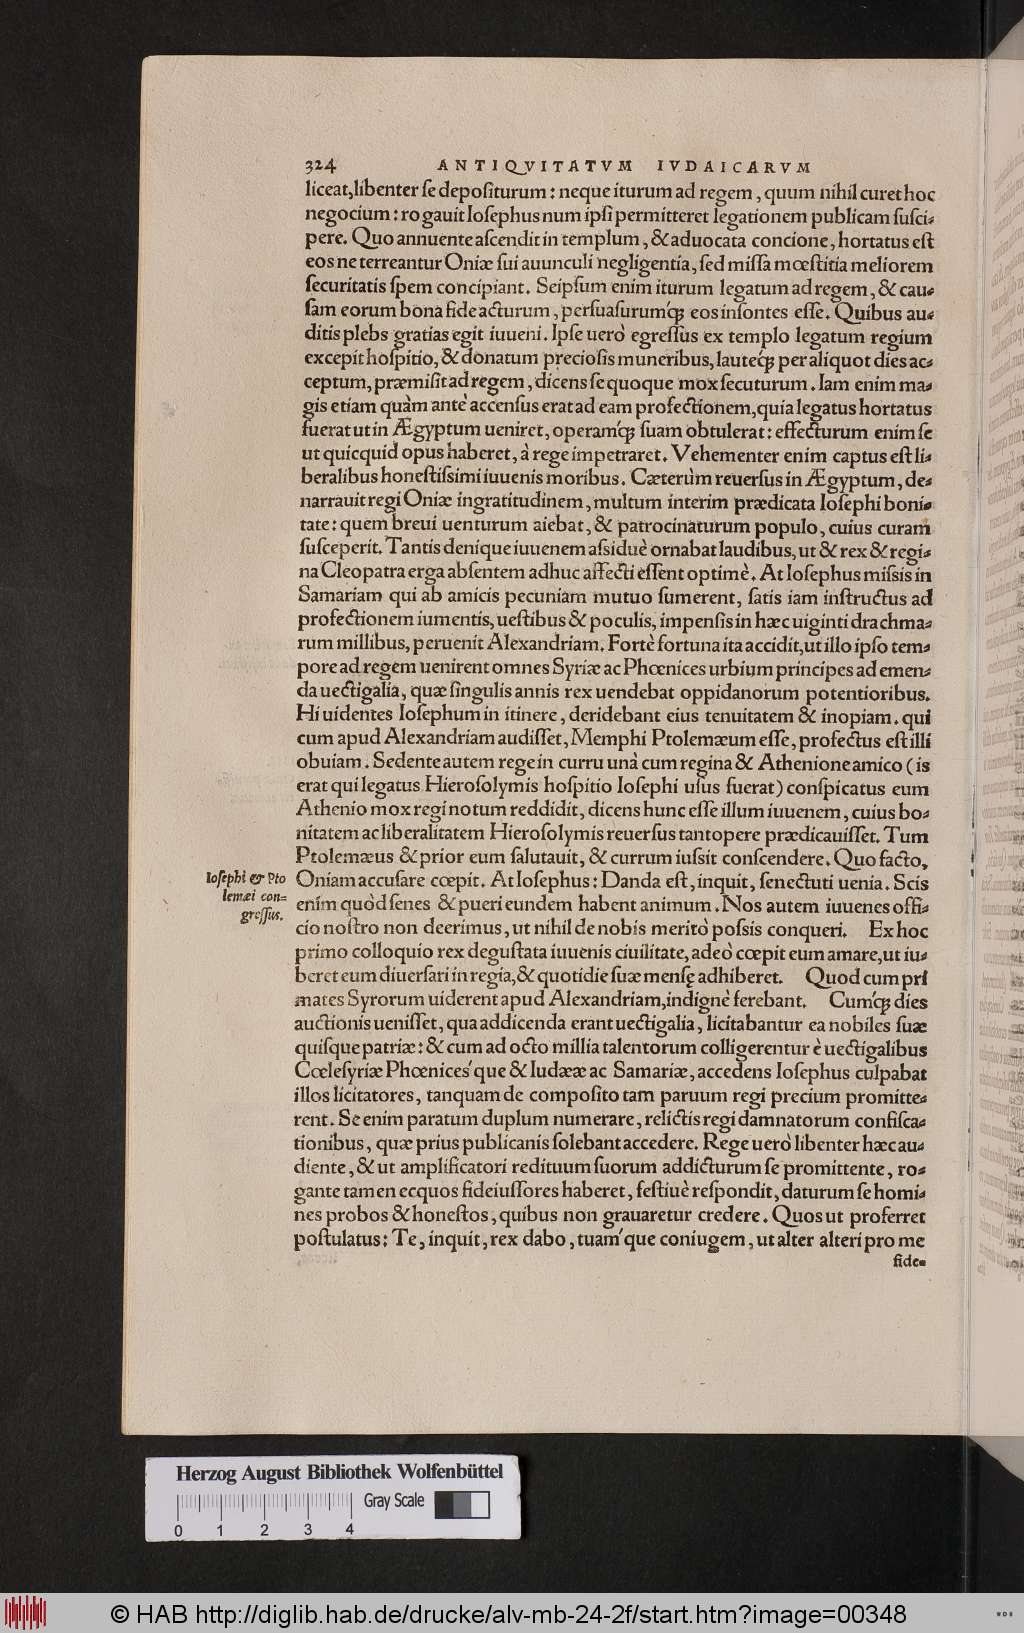 324 ANTIQVITATVM IVDAICARVM
liceat, libenter ſe depoſiturum: neque iturum ad regem, quum nihil curet hoc
negocium: rogauit Ioſephus num ipſi permitteret legationem publicam ſuſci-
pere. Quo annuente aſcendit in templum, & aduocata concione, hortatus eſt
eos ne terreantur Oniæ ſui auunculi negligentia, ſed miſſa mœſtitia meliorem
ſecuritatis ſpem concipiant. Seipſum enim iturum legatum ad regem, & cau-
ſam eorum bona fide acturum, perſuaſurumq́ꝫ eos inſontes eſſe. Quibus au-
ditis plebs gratias egit iuueni. Ipſe uerò egreſſus ex templo legatum regium
excepit hoſpitio, & donatum precioſis muneribus, lauteq́ꝫ per aliquot dies ac-
ceptum, præmiſit ad regem, dicens ſe quoque mox ſecuturum. Iam enim ma-
gis etiam quàm antè accenſus erat ad eam profectionem, quia legatus hortatus
fuerat ut in Ægyptum ueniret, operamq́ꝫ ſuam obtulerat: effecturum enim ſe
ut quicquid opus haberet, à rege impetraret. Vehementer enim captus eſt li-
beralibus honeſtiſsimi iuuenis moribus. Cæterùm reuerſus in Ægyptum, de-
narrauit regi Oniæ ingratitudinem, multum interim prædicata Ioſephi boni-
tate: quem breui uenturum aiebat, & patrocinaturum populo, cuius curam
ſuſceperit. Tantis denique iuuenem aſsiduè ornabat laudibus, ut & rex & regi-
na Cleopatra erga abſentem adhuc affecti eſſent optimè. At Ioſephus miſsis in
Samariam qui ab amicis pecuniam mutuo ſumerent, ſatis iam inſtructus ad
profectionem iumentis, ueſtibus & poculis, impenſis in hæc uiginti drachma-
rum millibus, peruenit Alexandriam. Fortè fortuna ita accidit, ut illo ipſo tem-
pore ad regem uenirent omnes Syriæ ac Phœnices urbium principes ad emen-
da uectigalia, quæ ſingulis annis rex uendebat oppidanorum potentioribus.
Hi uidentes Ioſephum in itinere, deridebant eius tenuitatem & inopiam. qui
cum apud Alexandriam audiſſet, Memphi Ptolemæum eſſe, profectus eſt illi
obuiam. Sedente autem rege in curru unà cum regina & Athenione amico (is
erat qui legatus Hieroſolymis hoſpitio Ioſephi uſus fuerat) conſpicatus eum
Athenio mox regi notum reddidit, dicens hunc eſſe illum iuuenem, cuius bo-
nitatem ac liberalitatem Hieroſolymis reuerſus tantopere prædicauiſſet. Tum
Ptolemæus & prior eum ſalutauit, & currum iuſsit conſcendere. Quo facto,
Ioſephi & Pto
lemæi con-
greſſus.
Oniam accuſare cœpit. At Ioſephus: Danda eſt, inquit, ſenectuti uenia. Scis
enim quòd ſenes & pueri eundem habent animum. Nos autem iuuenes offi-
cio noſtro non deerimus, ut nihil de nobis meritò poſsis conqueri. Ex hoc
primo colloquio rex deguſtata iuuenis ciuilitate, adeò cœpit eum amare, ut iu-
beret eum diuerſari in regia, & quotidie ſuæ menſę adhiberet. Quod cum pri
mates Syrorum uiderent apud Alexandriam, indignè ferebant. Cumq́ꝫ dies
auctionis ueniſſet, qua addicenda erant uectigalia, licitabantur ea nobiles ſuæ
quiſque patriæ: & cum ad octo millia talentorum colligerentur è uectigalibus
Cœleſyriæ Phœnices´que & Iudææ ac Samariæ, accedens Ioſephus culpabat
illos licitatores, tanquam de compoſito tam paruum regi precium promitte-
rent. Se enim paratum duplum numerare, relictis regi damnatorum confiſca-
tionibus, quæ prius publicanis ſolebant accedere. Rege uerò libenter hæc au-
diente, & ut amplificatori redituum ſuorum addicturum ſe promittente, ro-
gante tamen ecquos fideiuſſores haberet, feſtiuè reſpondit, daturum ſe homi-
nes probos & honeſtos, quibus non grauaretur credere. Quos ut proferret
poſtulatus: Te, inquit, rex dabo, tuam´que coniugem, ut alter alteri pro me
fide-
Herzog August Bibliothek Wolfenbüttel
Gray Scale
0 1 2 3 4
© HAB http://diglib.hab.de/drucke/alv-mb-24-2f/start.htm?image=00348